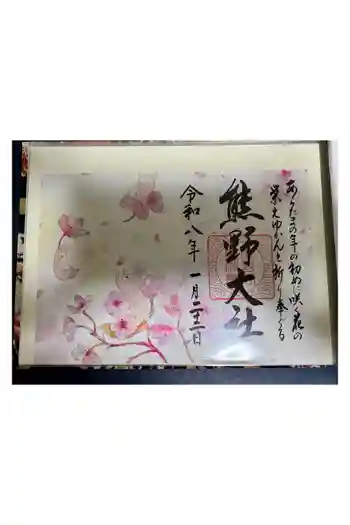 あらたまの年の初めに咲く花の
栄えゆかんと祈り奉ぐる
熊野大社
令和八年 一月二十二日